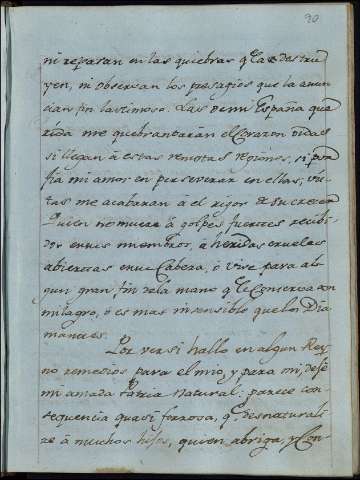 90
ni reparan en las quiebras q.e la destru
yen, ni observan los presagios que la anun
cian fin lastimoso. Las de mi España que
rida me quebrantarán el Corazon oidas
si llegan à estas remotas regiones, si porfia
mi amor en perseverar en ellas, vis
tas me acabarán à el rigor de su crecer
Quien no muere à golpes fuertes recibi
dos en sus miembros, à heridas crueles
abiertas en su Cabeza, ò vive para al
gun gran fin de la mano q.e le Conserva con
milagro, ò es mas insensible que los Dia
mantes.
Por ver si hallo en algun Rey
no remedios para el mio, y para mi, dejè
mi amada Patria Natural: parece con
sequencia quasi forzosa, q.e desnaturali
ze à muchos hijos, quien abriga, y Con-